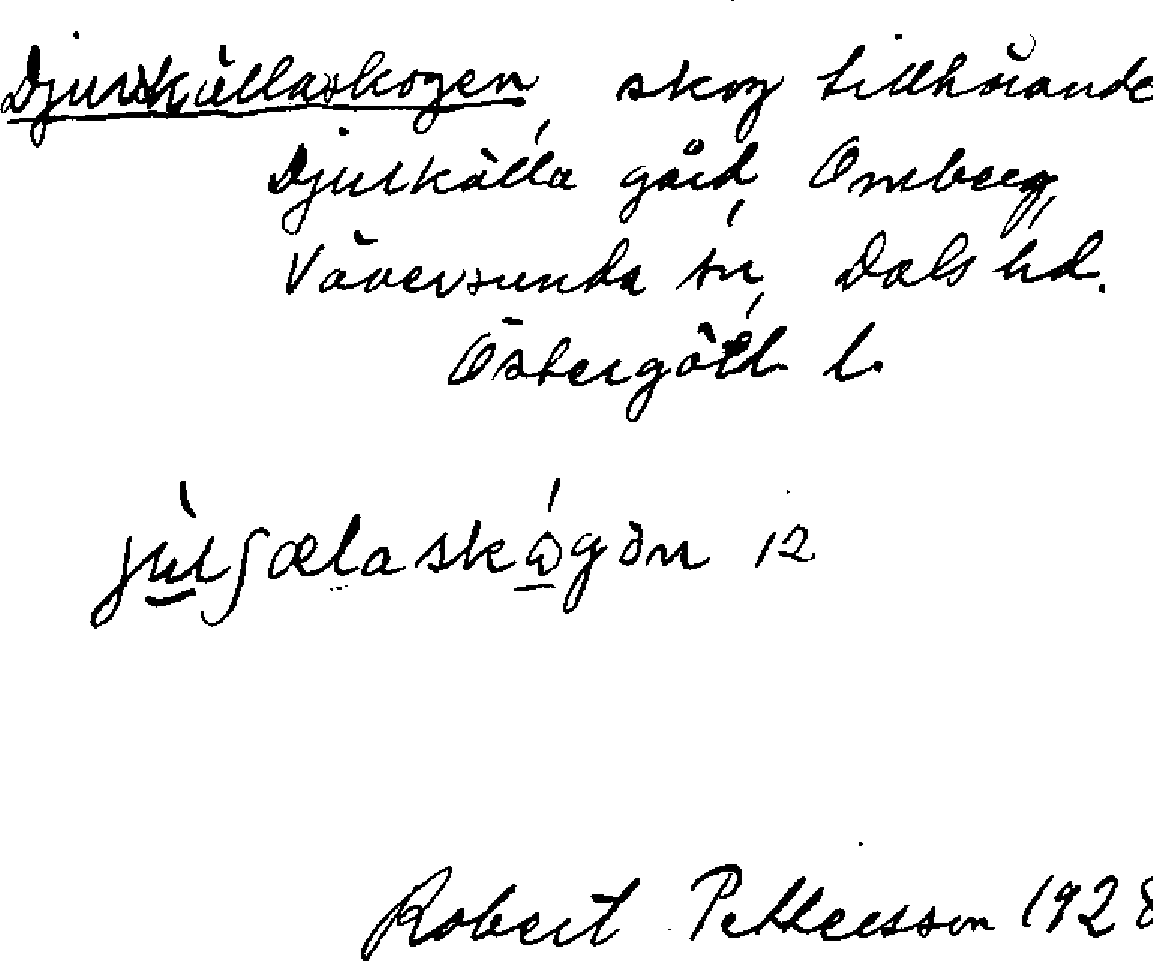 Djurkällaskogen, skog tillhörande
Djurkälla gård, Omberg,
Väversunda sn, Dals hd.
Östergötl. l.
jùrʃælaskógən 12
Robert Pettersson 1928